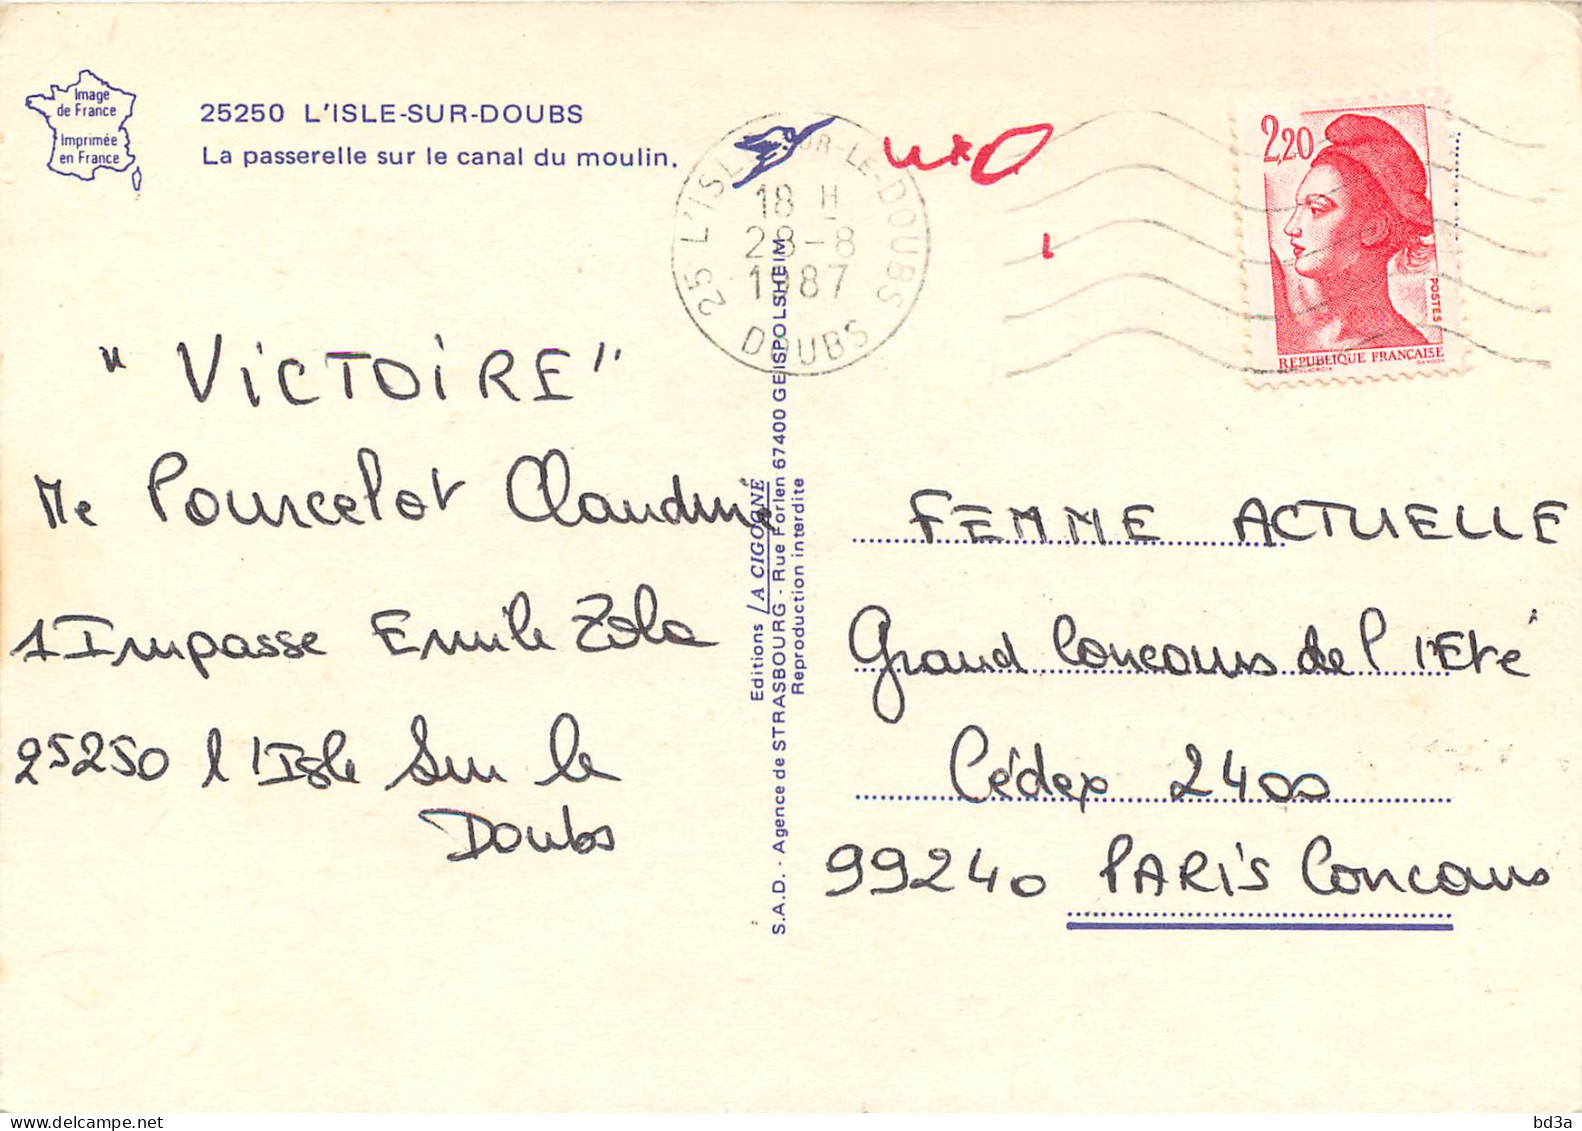 Image
de France
Imprimée
en France
25250 L'ISLE-SUR-DOUBS
La passerelle sur le canal du moulin.
25 L'ISLE-SUR-LE-DOUBS
18 H
28-8
1987
DOUBS
2,20
POSTES
REPUBLIQUE FRANÇAISE
DELACROIX
GANDON
"VICTOIRE"
Me Pourcelot Claudine
1 Impasse Emile Zola
25250 l'Isle Sur le
Doubs
Editions LA CIGOGNE
S.A.D. - Agence de STRASBOURG - Rue Forlen 67400 GEISPOLSHEIM
Reproduction interdite
FEMME ACTUELLE
Grand Concours de l'Eté
Cédex 2400
99240 PARIS Concours
bd3a